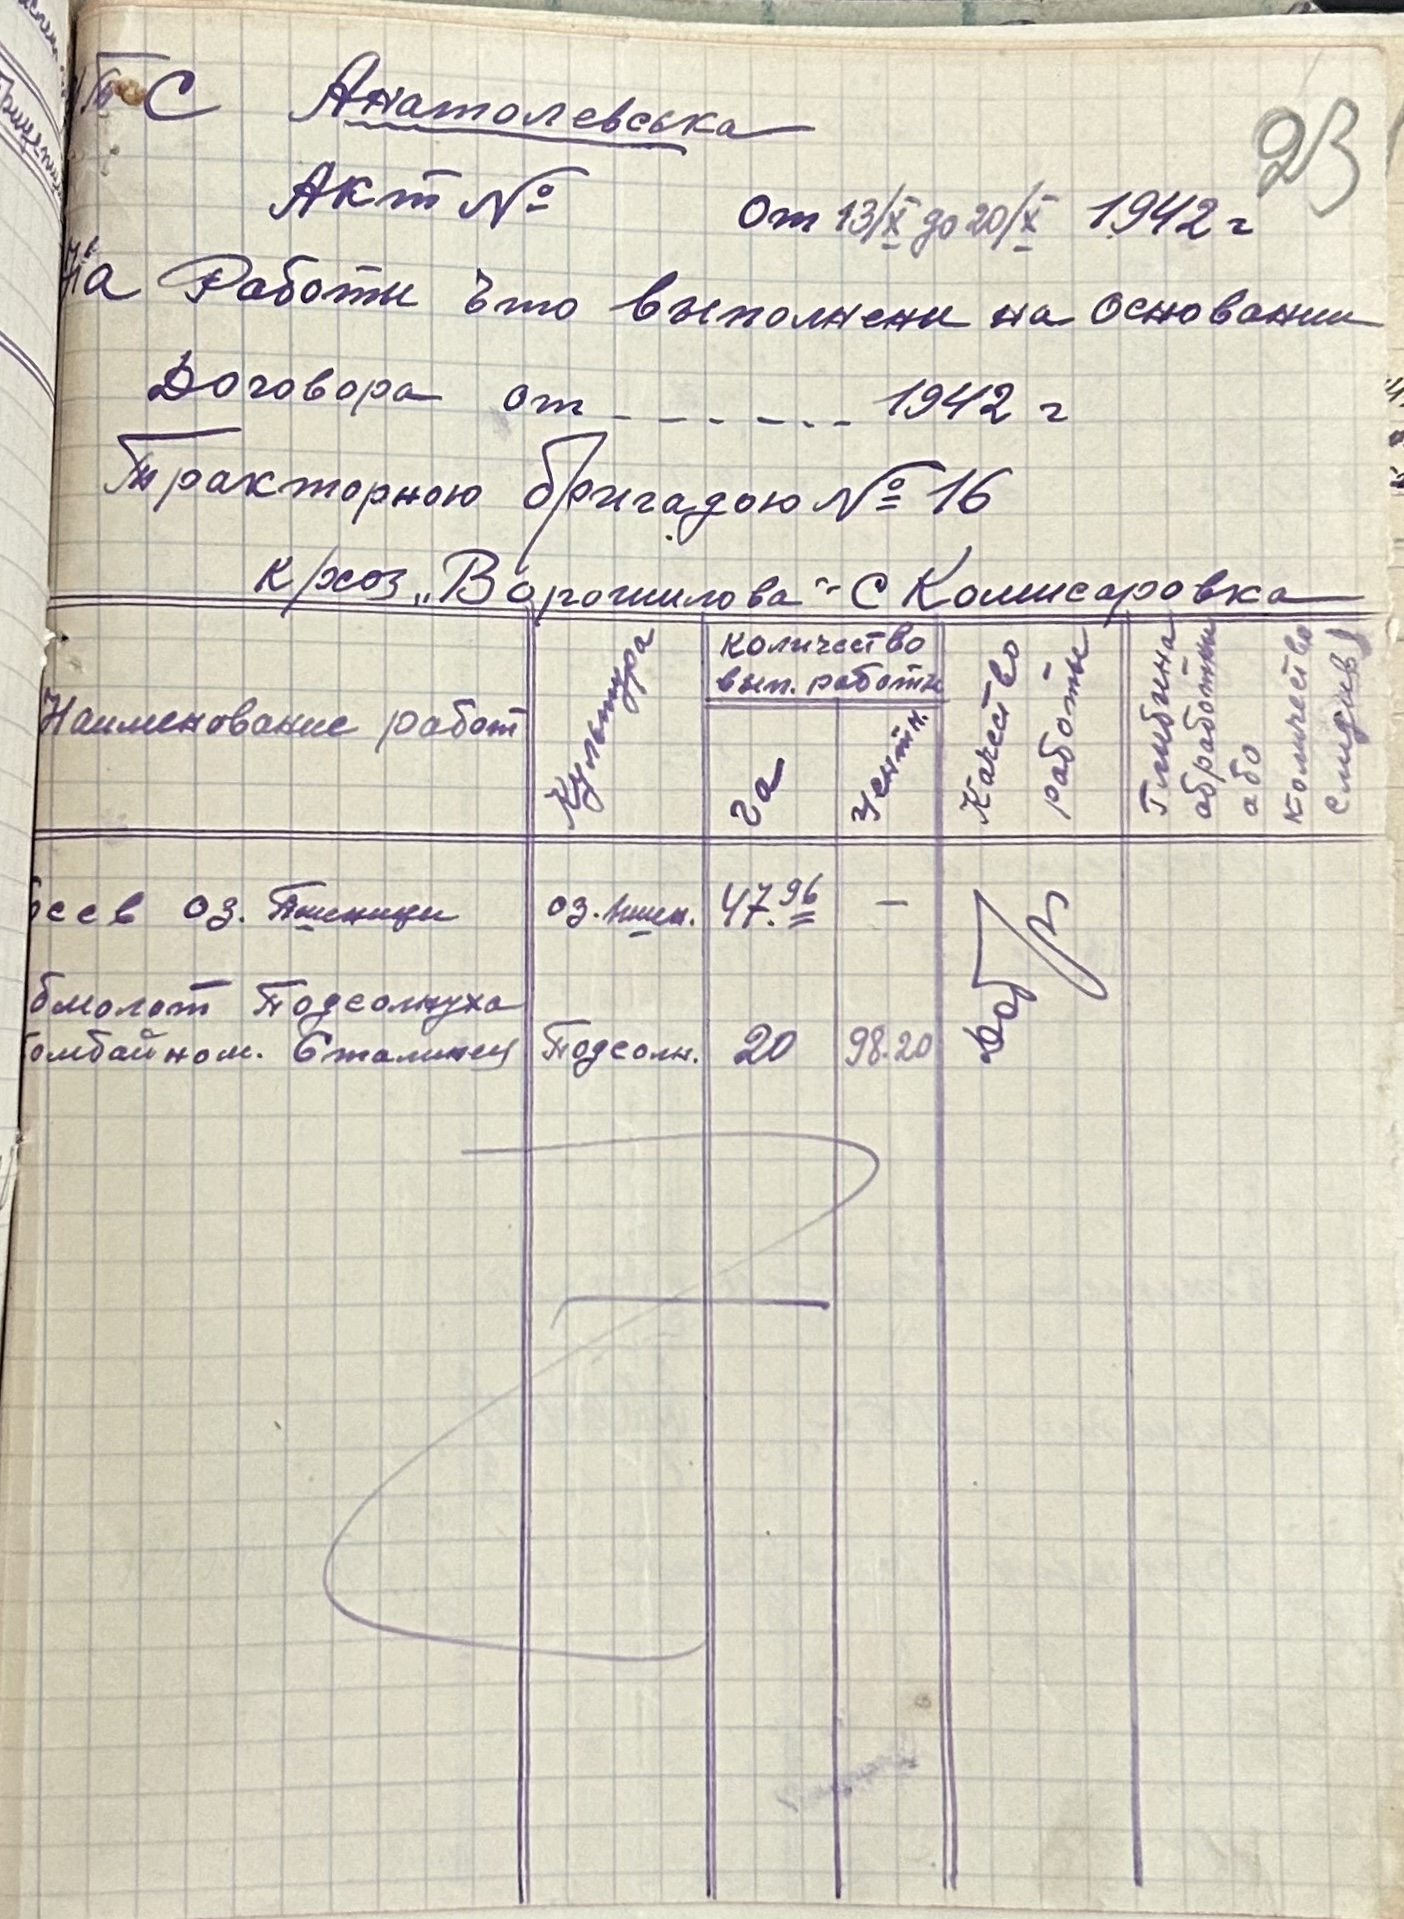 МТС Анатолевська
23
Акт № от 13/X до 20/X 1942 г
На Работи что выполнени на основании
Договора от _ . _ . _ . . _ 1942 г
Тракторною бригадою № 16
к/хоз „Ворошилова" с Комисаровка
Наименование работ
Культура
количество вып. работи
га
центн.
Качество работы
Глибина обработки або количество слидив
сев оз. Пшеници оз. пшен. 47.96 —
бмолот Подсолнуха
омбайном. Сталинец Подсолн. 20 98.20